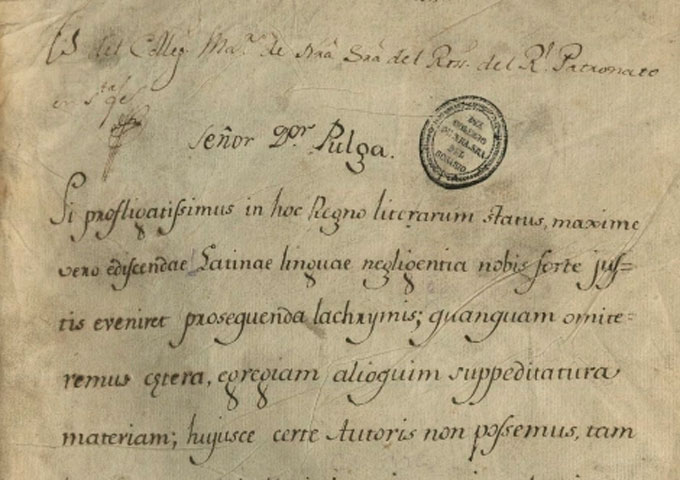 Es del Colleg. Maʳ. de Nrâ Srâ del Ros. del R.ˡ Patronato
en S.ᵗᵃ
Señor D.ᵒʳ Pulga.
DEL
COLEGIO
DE N. SRA
DEL
ROSARIO
Si profligatissimus in hoc Regno literarum status, maxime
vero ediscendae Latinae linguae negligentia nobis forte jus=
tis eveniret prosequenda lachrymis; quanquam omite=
remus cętera, egregiam alioquim suppeditatura
materiam; hujusce certe Autoris non possemus, tam